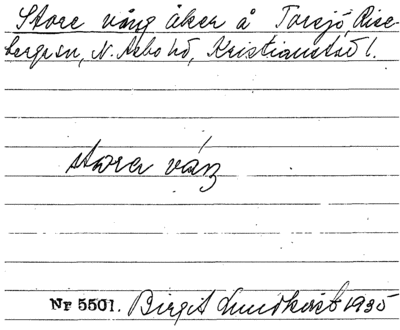 Store vång åker å Torsjö, Rise-
berga sn, N. Åsbo hd, Kristianstad l.
stora váŋ
Nr 5501. Birgit Lundkvist 1935